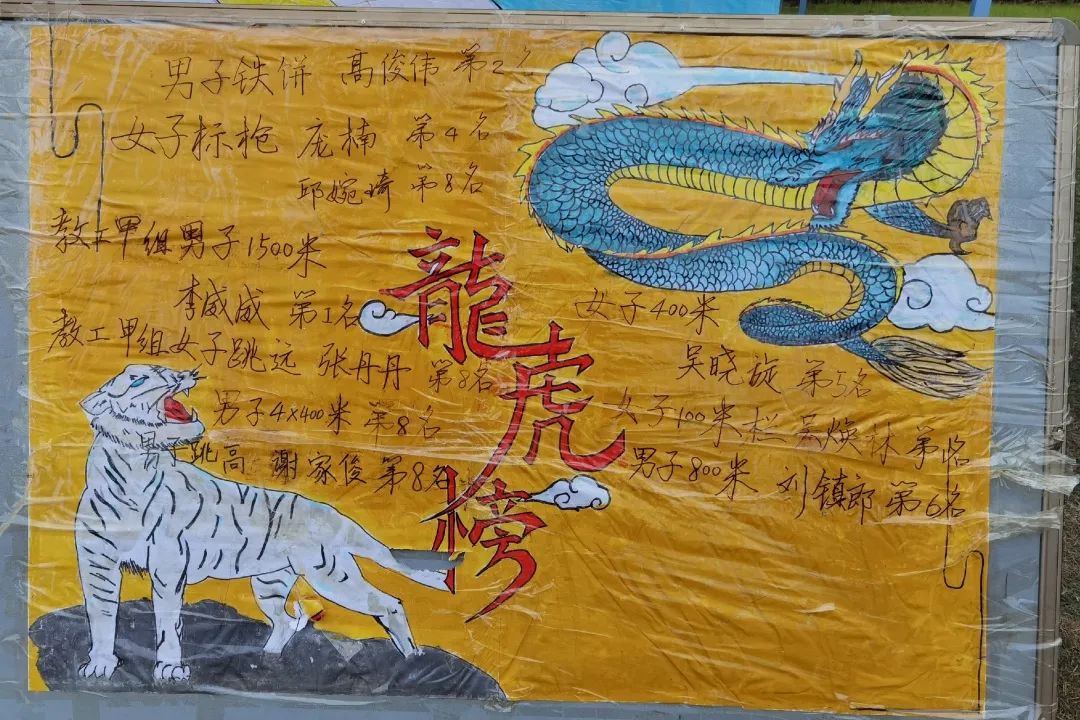 男子铁饼 高俊伟 第2名
女子标枪 庞楠 第4名
邱婉琦 第8名
教工甲组男子1500米
李威成 第1名
教工甲组女子跳远 张丹丹 第8名
男子4×400米 第8名
男子跳高 谢家俊 第8名
龍虎榜
女子400米
吴晓旋 第5名
女子100米栏 林 第1名
男子800米 刘镇郎 第6名